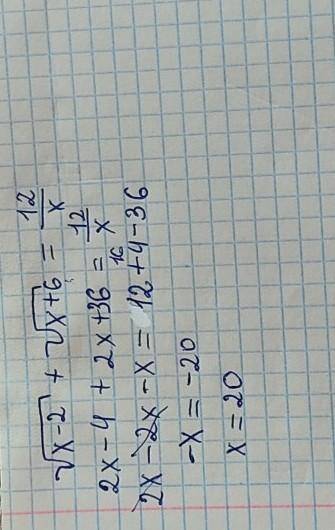 √x-2 + √x+6 = 12/x
2x-4 + 2x+36 = 12/x
16
2x-2x-x = 12+4-36
-x = -20
x = 20